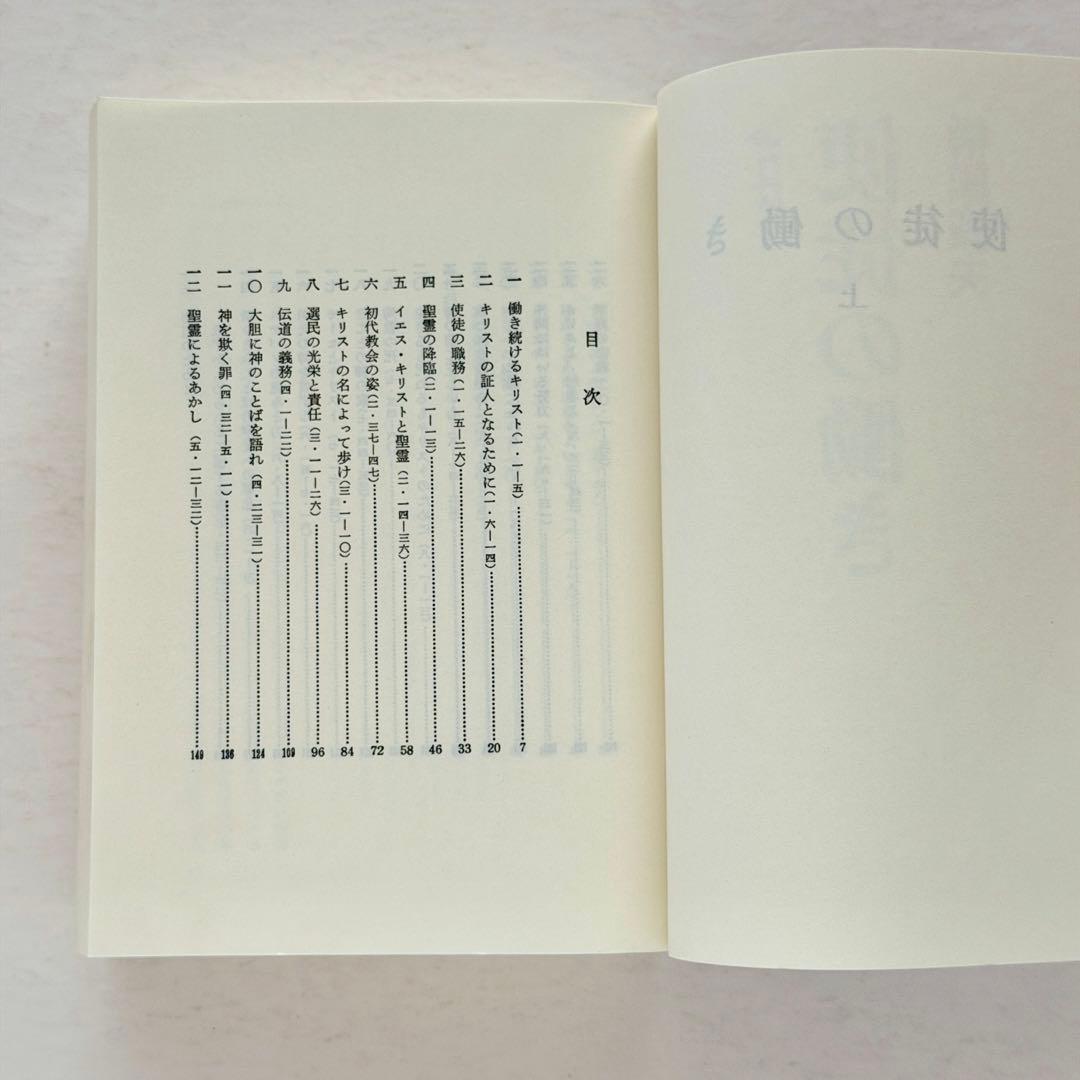 使徒の働き
上
目次
一 働き続けるキリスト(一・一―五)……7
二 キリストの証人となるために(一・六―一四)……20
三 使徒の職務(一・一五―二六)……33
四 聖霊の降臨(二・一―一三)……46
五 イエス・キリストと聖霊(二・一四―三六)……58
六 初代教会の姿(二・三七―四七)……72
七 キリストの名によって歩け(三・一―一〇)……84
八 選民の光栄と責任(三・一一―二六)……96
九 伝道の義務(四・一―二二)……109
一〇 大胆に神のことばを語れ(四・二三―三一)……124
一一 神を欺く罪(四・三二―五・一一)……136
一二 聖霊によるあかし(五・一二―三二)……149